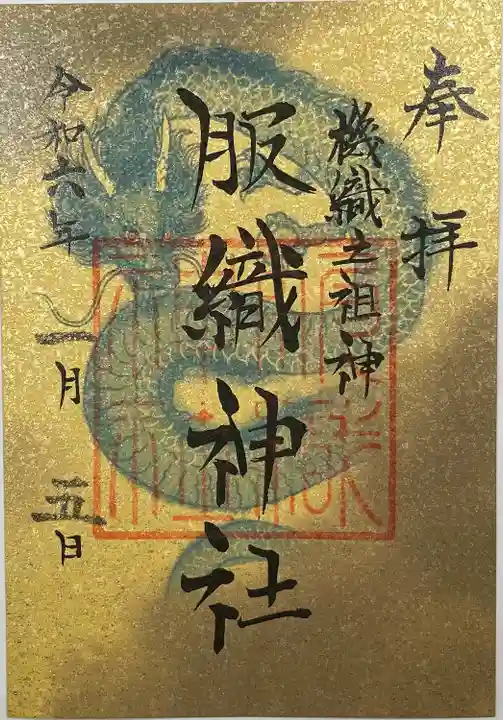 奉拝
機織之祖神
服織神社
令和六年一月五日